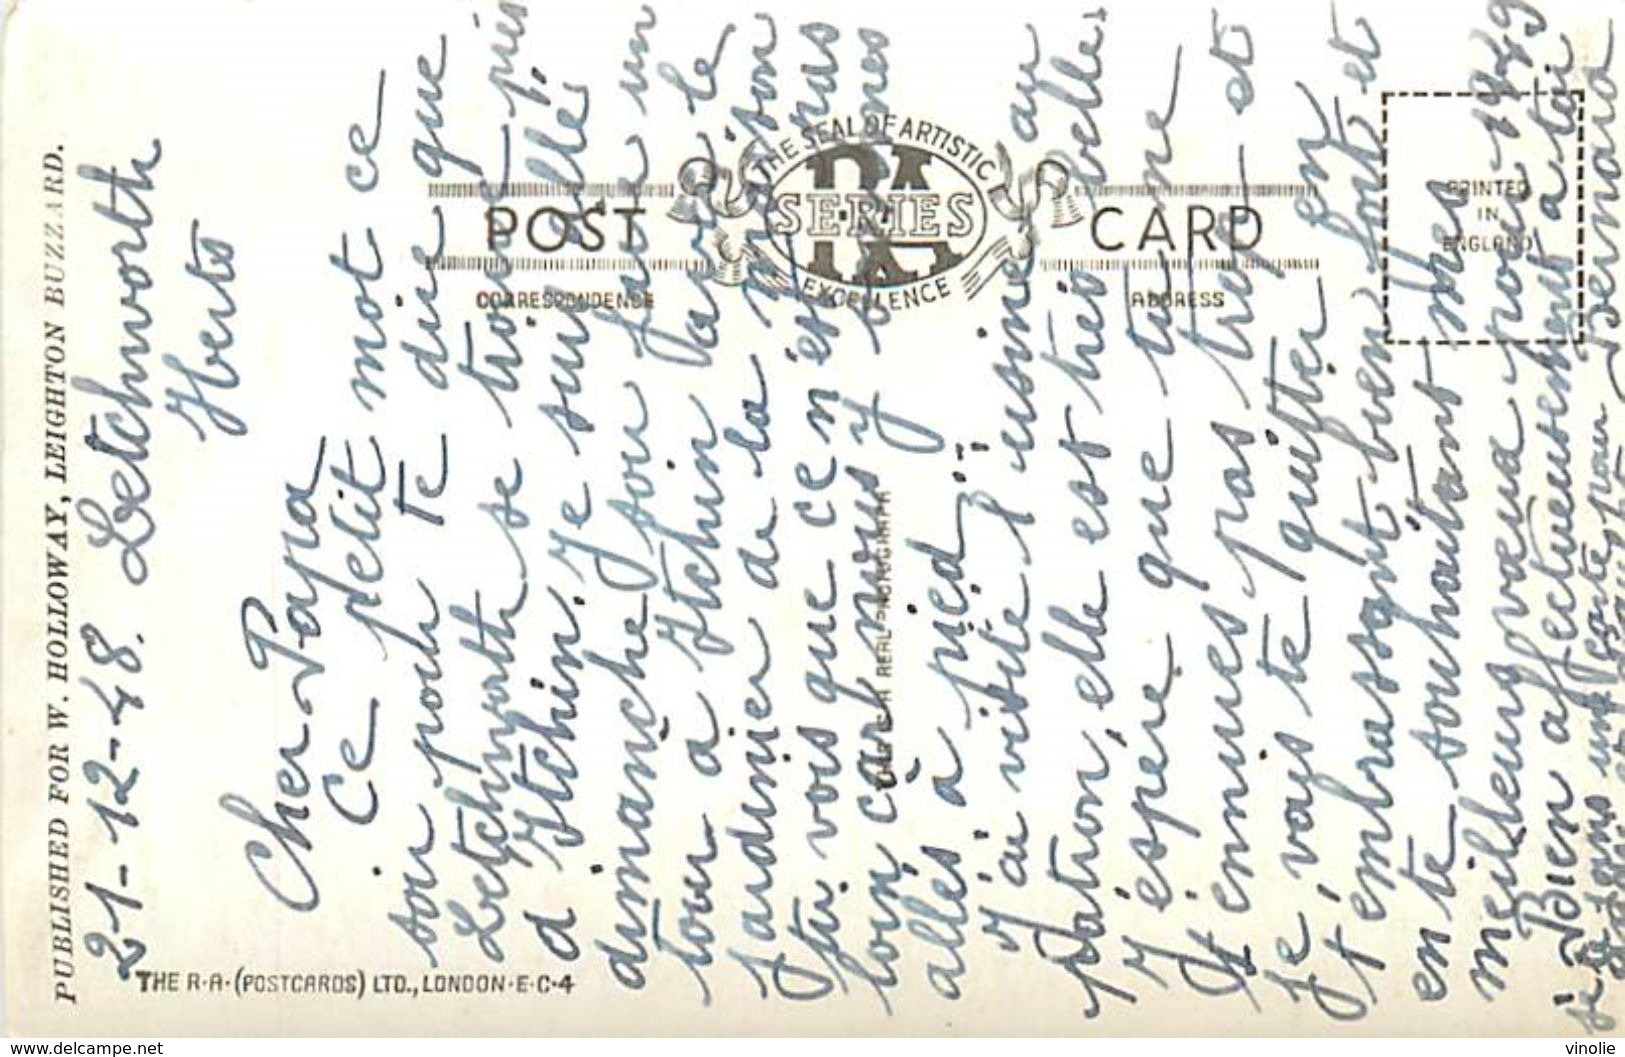 PUBLISHED FOR W. HOLLOWAY, LEIGHTON BUZZARD.
21-12-48. Letchworth
Herts
Cher Papa
Ce petit mot ce
soir pour te dire que
Letchworth se trouve près
d'Itchin. Je suis allé
dimanche soir faire un
tour à Itchin avec le
jardinier de la maison
tu vois que ce n'est pas
loin, car nous y sommes
allés à pied...
J'ai visité l'usine au
patron, elle est très belle.
J'espère que tu ne
t'ennuies pas trop et
je vais te quitter en
t'embrassant bien fort et
en te souhaitant mes
meilleurs vœux pour 1949
Bien affectueusement à toi
Bernard
je joins une carte pour
POST CARD
THE SEAL OF ARTISTIC EXCELLENCE
RA
SERIES
CORRESPONDENCE
ADDRESS
PRINTED
IN
ENGLAND
THIS IS A REAL PHOTOGRAPH
THE R·A·(POSTCARDS) LTD., LONDON·E·C·4
delcampe.net
vinolie